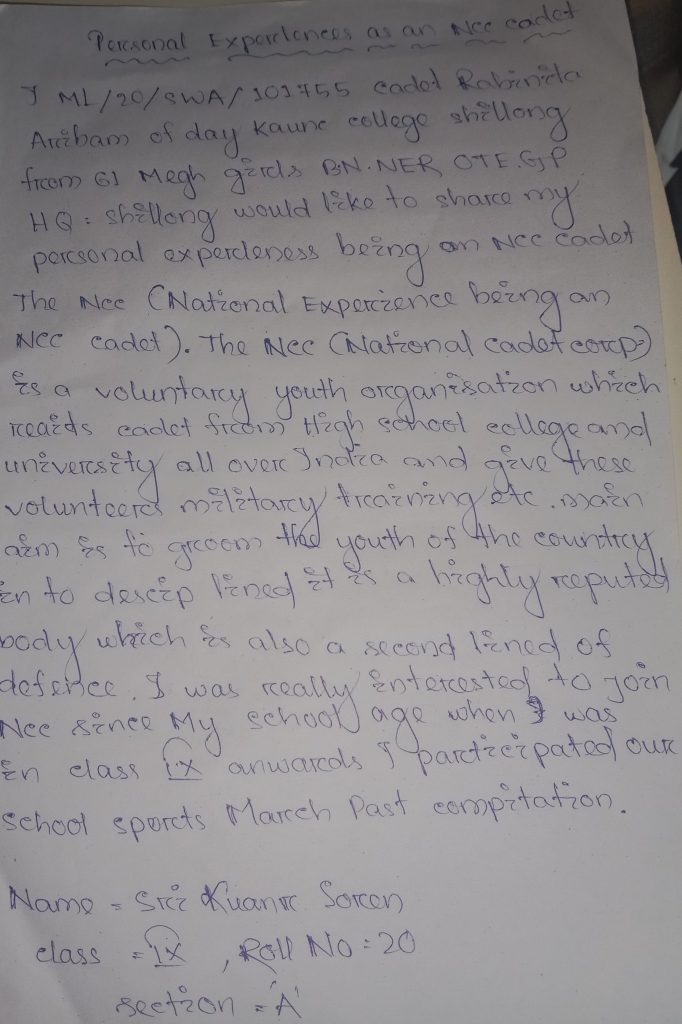 Personal Experdences as an Ncc cadet
I ML/20/SWA/101755 cadet Rabinita
Aribam of day Kaunr college shillong
from 61 Megh girls BN.NER OTE.GP
HQ: shillong would like to share my
personal experdeness being an Ncc cadet
The Ncc (National Experience being an
Ncc cadet). The Ncc (National cadet corp)
is a voluntary youth organisation which
reaids cadet from High school college and
university all over India and give these
volunteers military training etc. main
aim is to groom the youth of the country
in to descip lined it is a highly reputed
body which is also a second lined of
defence. I was really interested to join
Ncc since My school age when I was
in class IX anwards I participated our
school sports March Past compitation.
Name = Sri Kuanr Soren
class = IX, Roll No = 20
section = 'A'